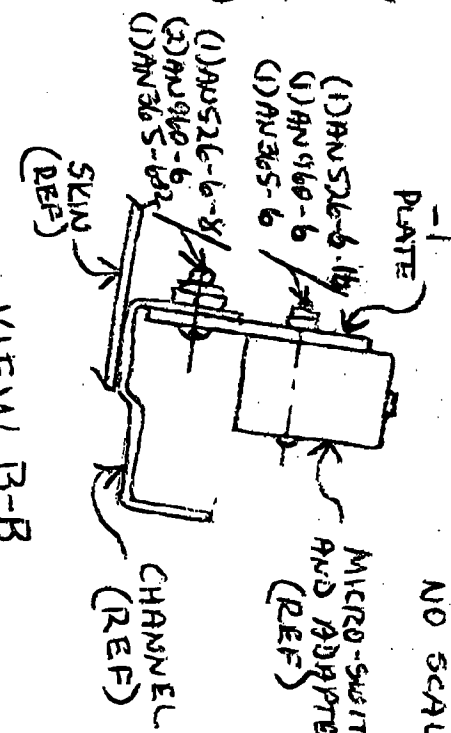 NO SCAL
-1
PLATE
(1)AN526-6-14
(1)AN960-6
(1)AN365-6
(1)AN526-6-8
(2)AN960-6
(1)AN365-632
SKIN
(REF)
MICRO-SWIT
AND ADAPTE
(REF)
CHANNEL
(REF)
VIEW B-B